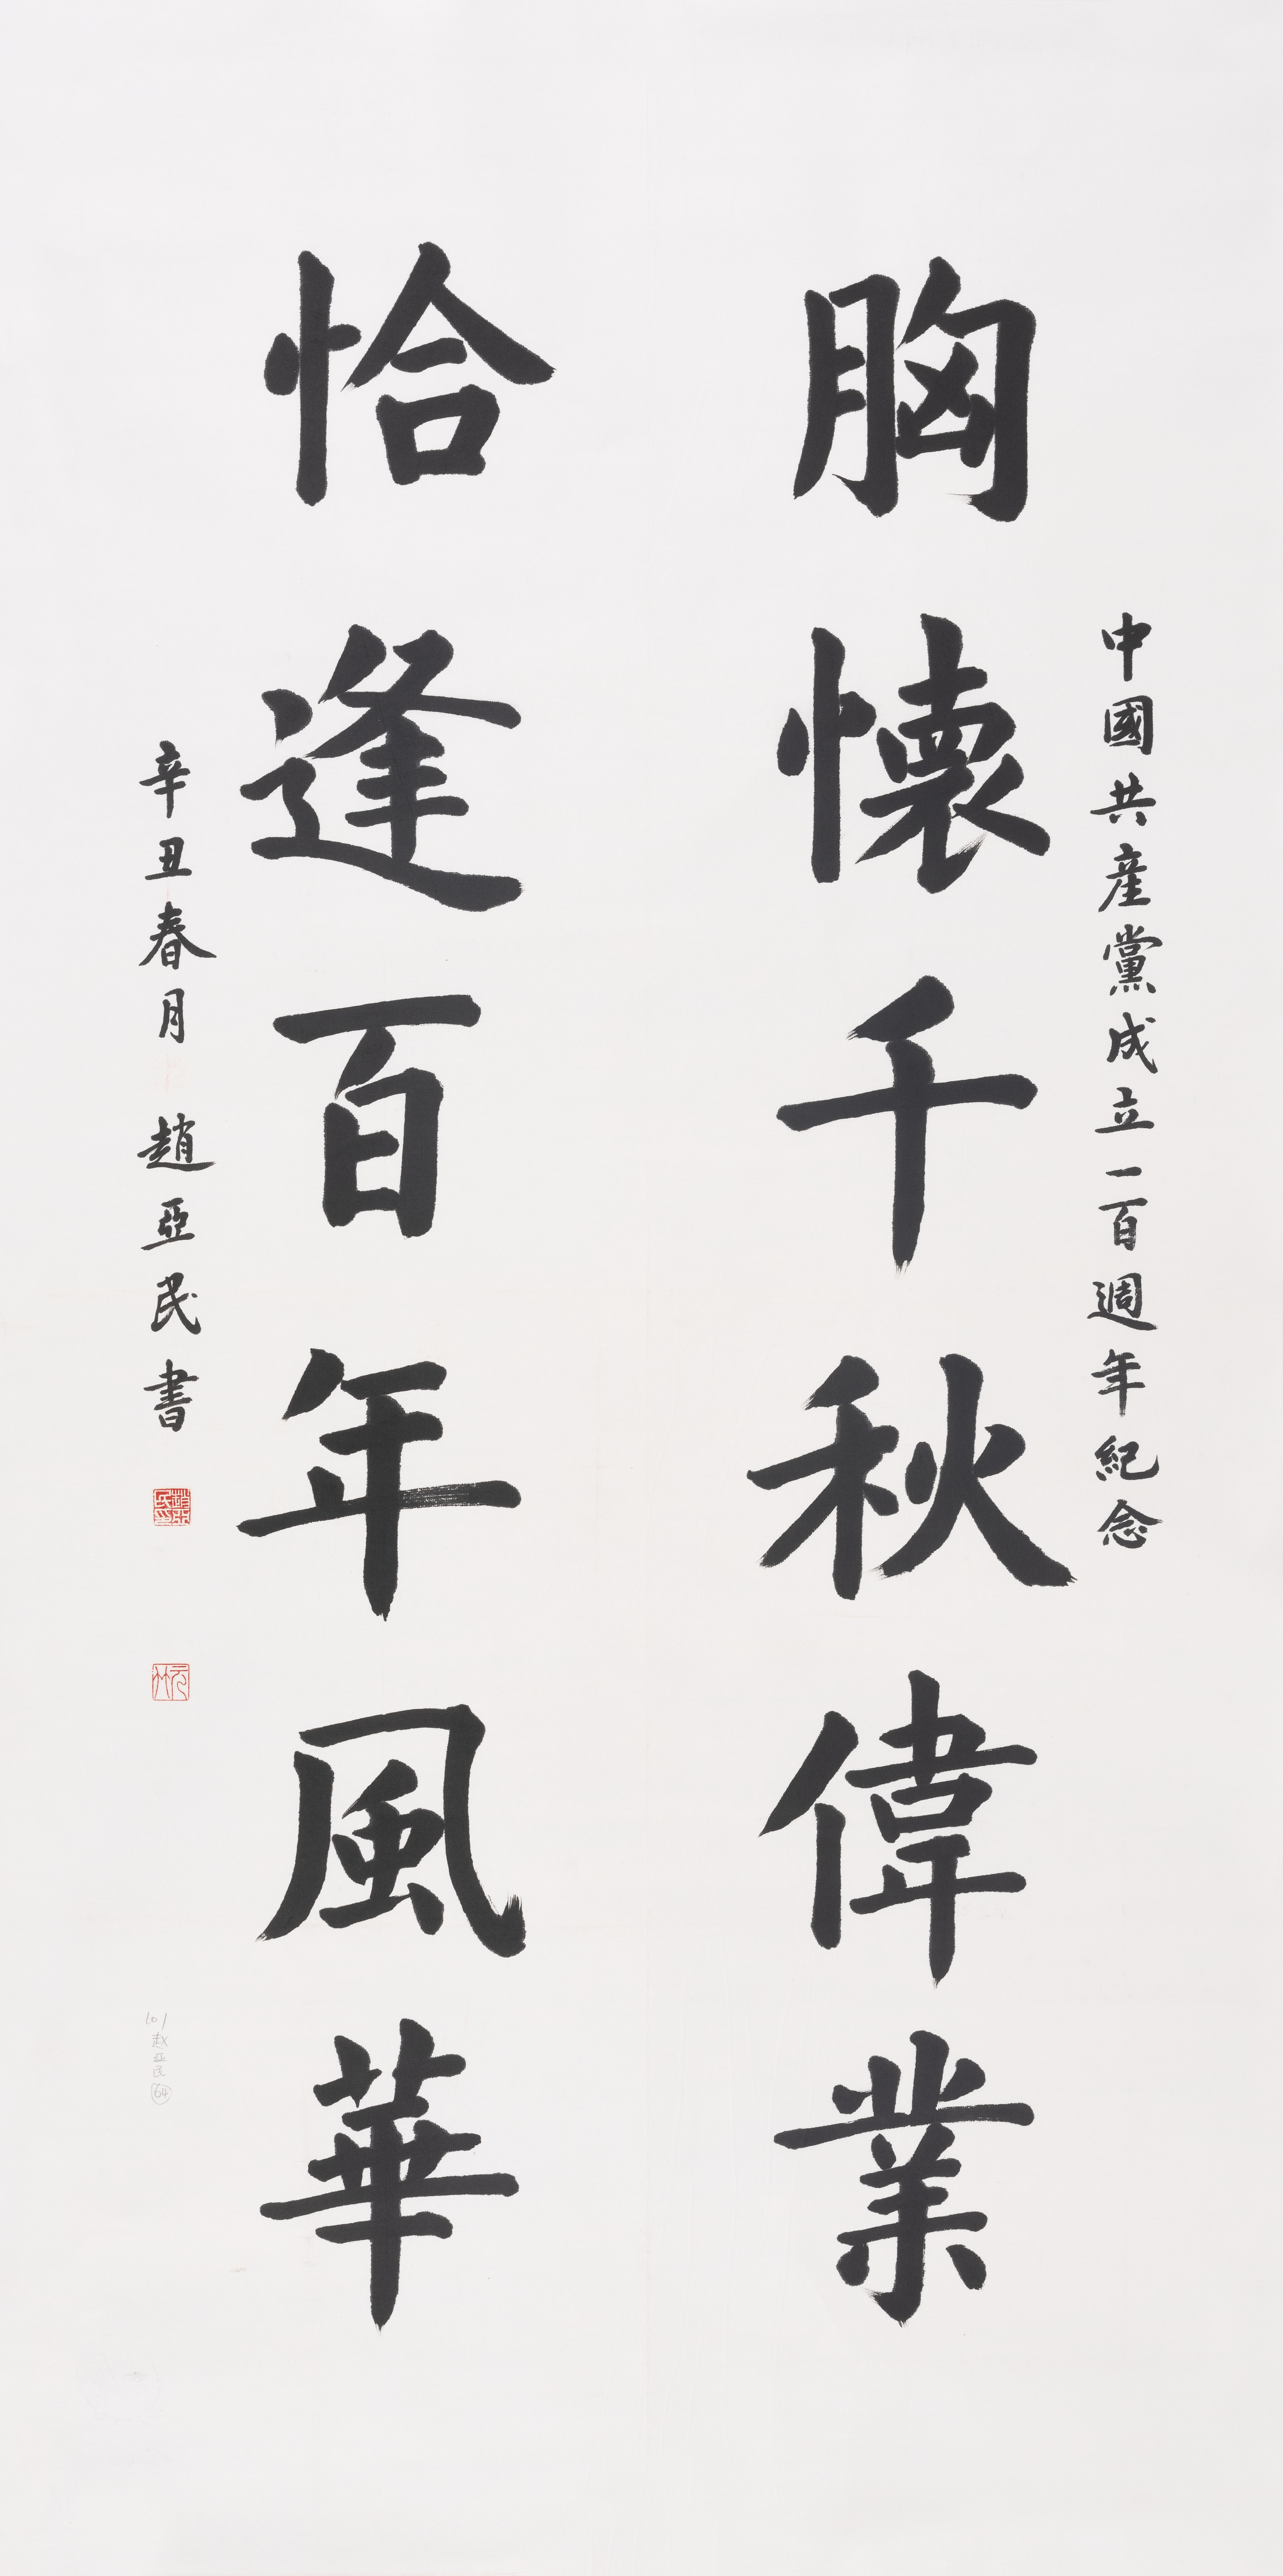 中國共產黨成立一百週年紀念
胸懷千秋偉業
恰逢百年風華
辛丑春月 趙亞民書
趙亞民印
101
赵亚民
64